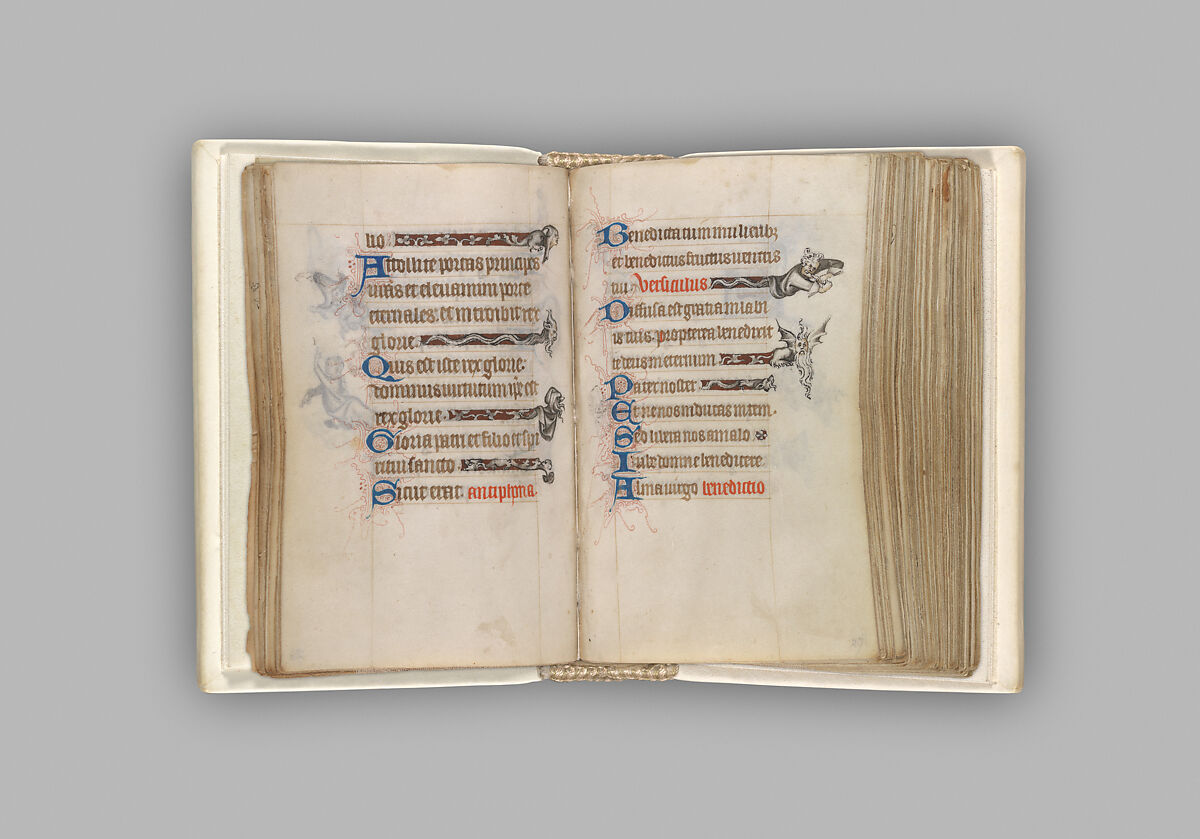 lio
Attollite portas principes
uras et elevamini porte
eternales. et introibit rex
glorie.
Quis est iste rex glorie.
dominus virtutum ipse est
rex glorie.
Gloria patri et filio et spi
ritui sancto.
Sicut erat. antiphona.
Benedicta tu in mulieribꝫ
et benedictus fructus ventris
tui. Versiculus
Diffusa est gratia in labi
is tuis. propterea benedixit
te deus in eternum
Pater noster
Et ne nos inducas in tem.
Sed libera nos a malo
Iube domine benedicere.
Alma virgo benedictio